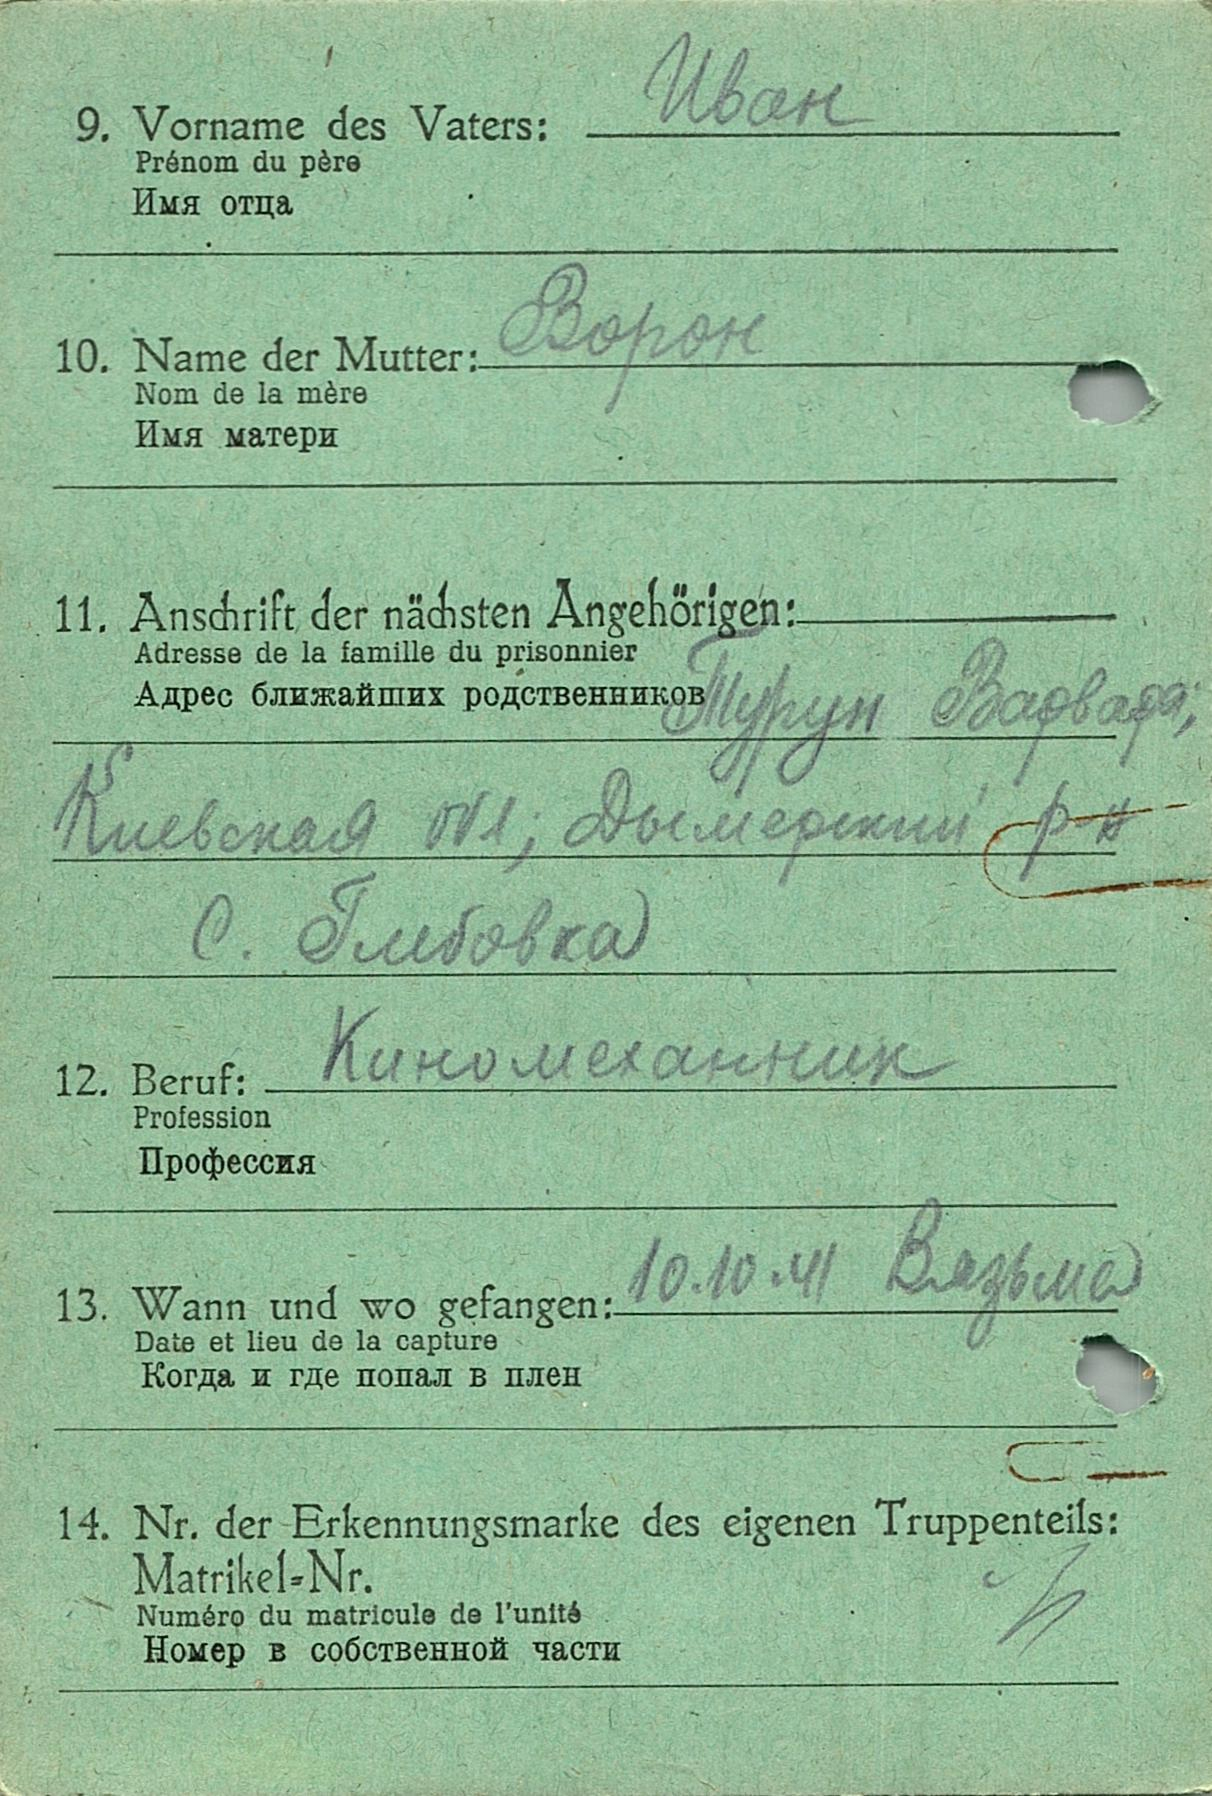 9. Vorname des Vaters: Иван
Prénom du père
Имя отца
10. Name der Mutter: Ворон
Nom de la mère
Имя матери
11. Anschrift der nächsten Angehörigen:
Adresse de la famille du prisonnier
Адрес ближайших родственников Турун Варвара;
Киевская обл; Дымерский р-н
С. Глебовка
12. Beruf: Киномеханник
Profession
Профессия
13. Wann und wo gefangen: 10.10.41 Вязьма
Date et lieu de la capture
Когда и где попал в плен
14. Nr. der Erkennungsmarke des eigenen Truppenteils:
Matrikel=Nr.
Numéro du matricule de l'unité
Номер в собственной части